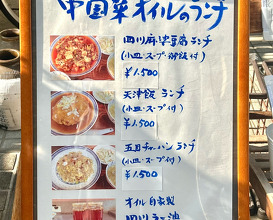 中国菜オイルのランチ
四川麻婆豆腐ランチ
(小皿・スープ・御飯付)
¥1,500
天津飯 ランチ
(小皿・スープ付)
¥1,500
五目チャーハン ランチ
(小皿・スープ付)
¥1,500
オイル自家製
四川ラー油